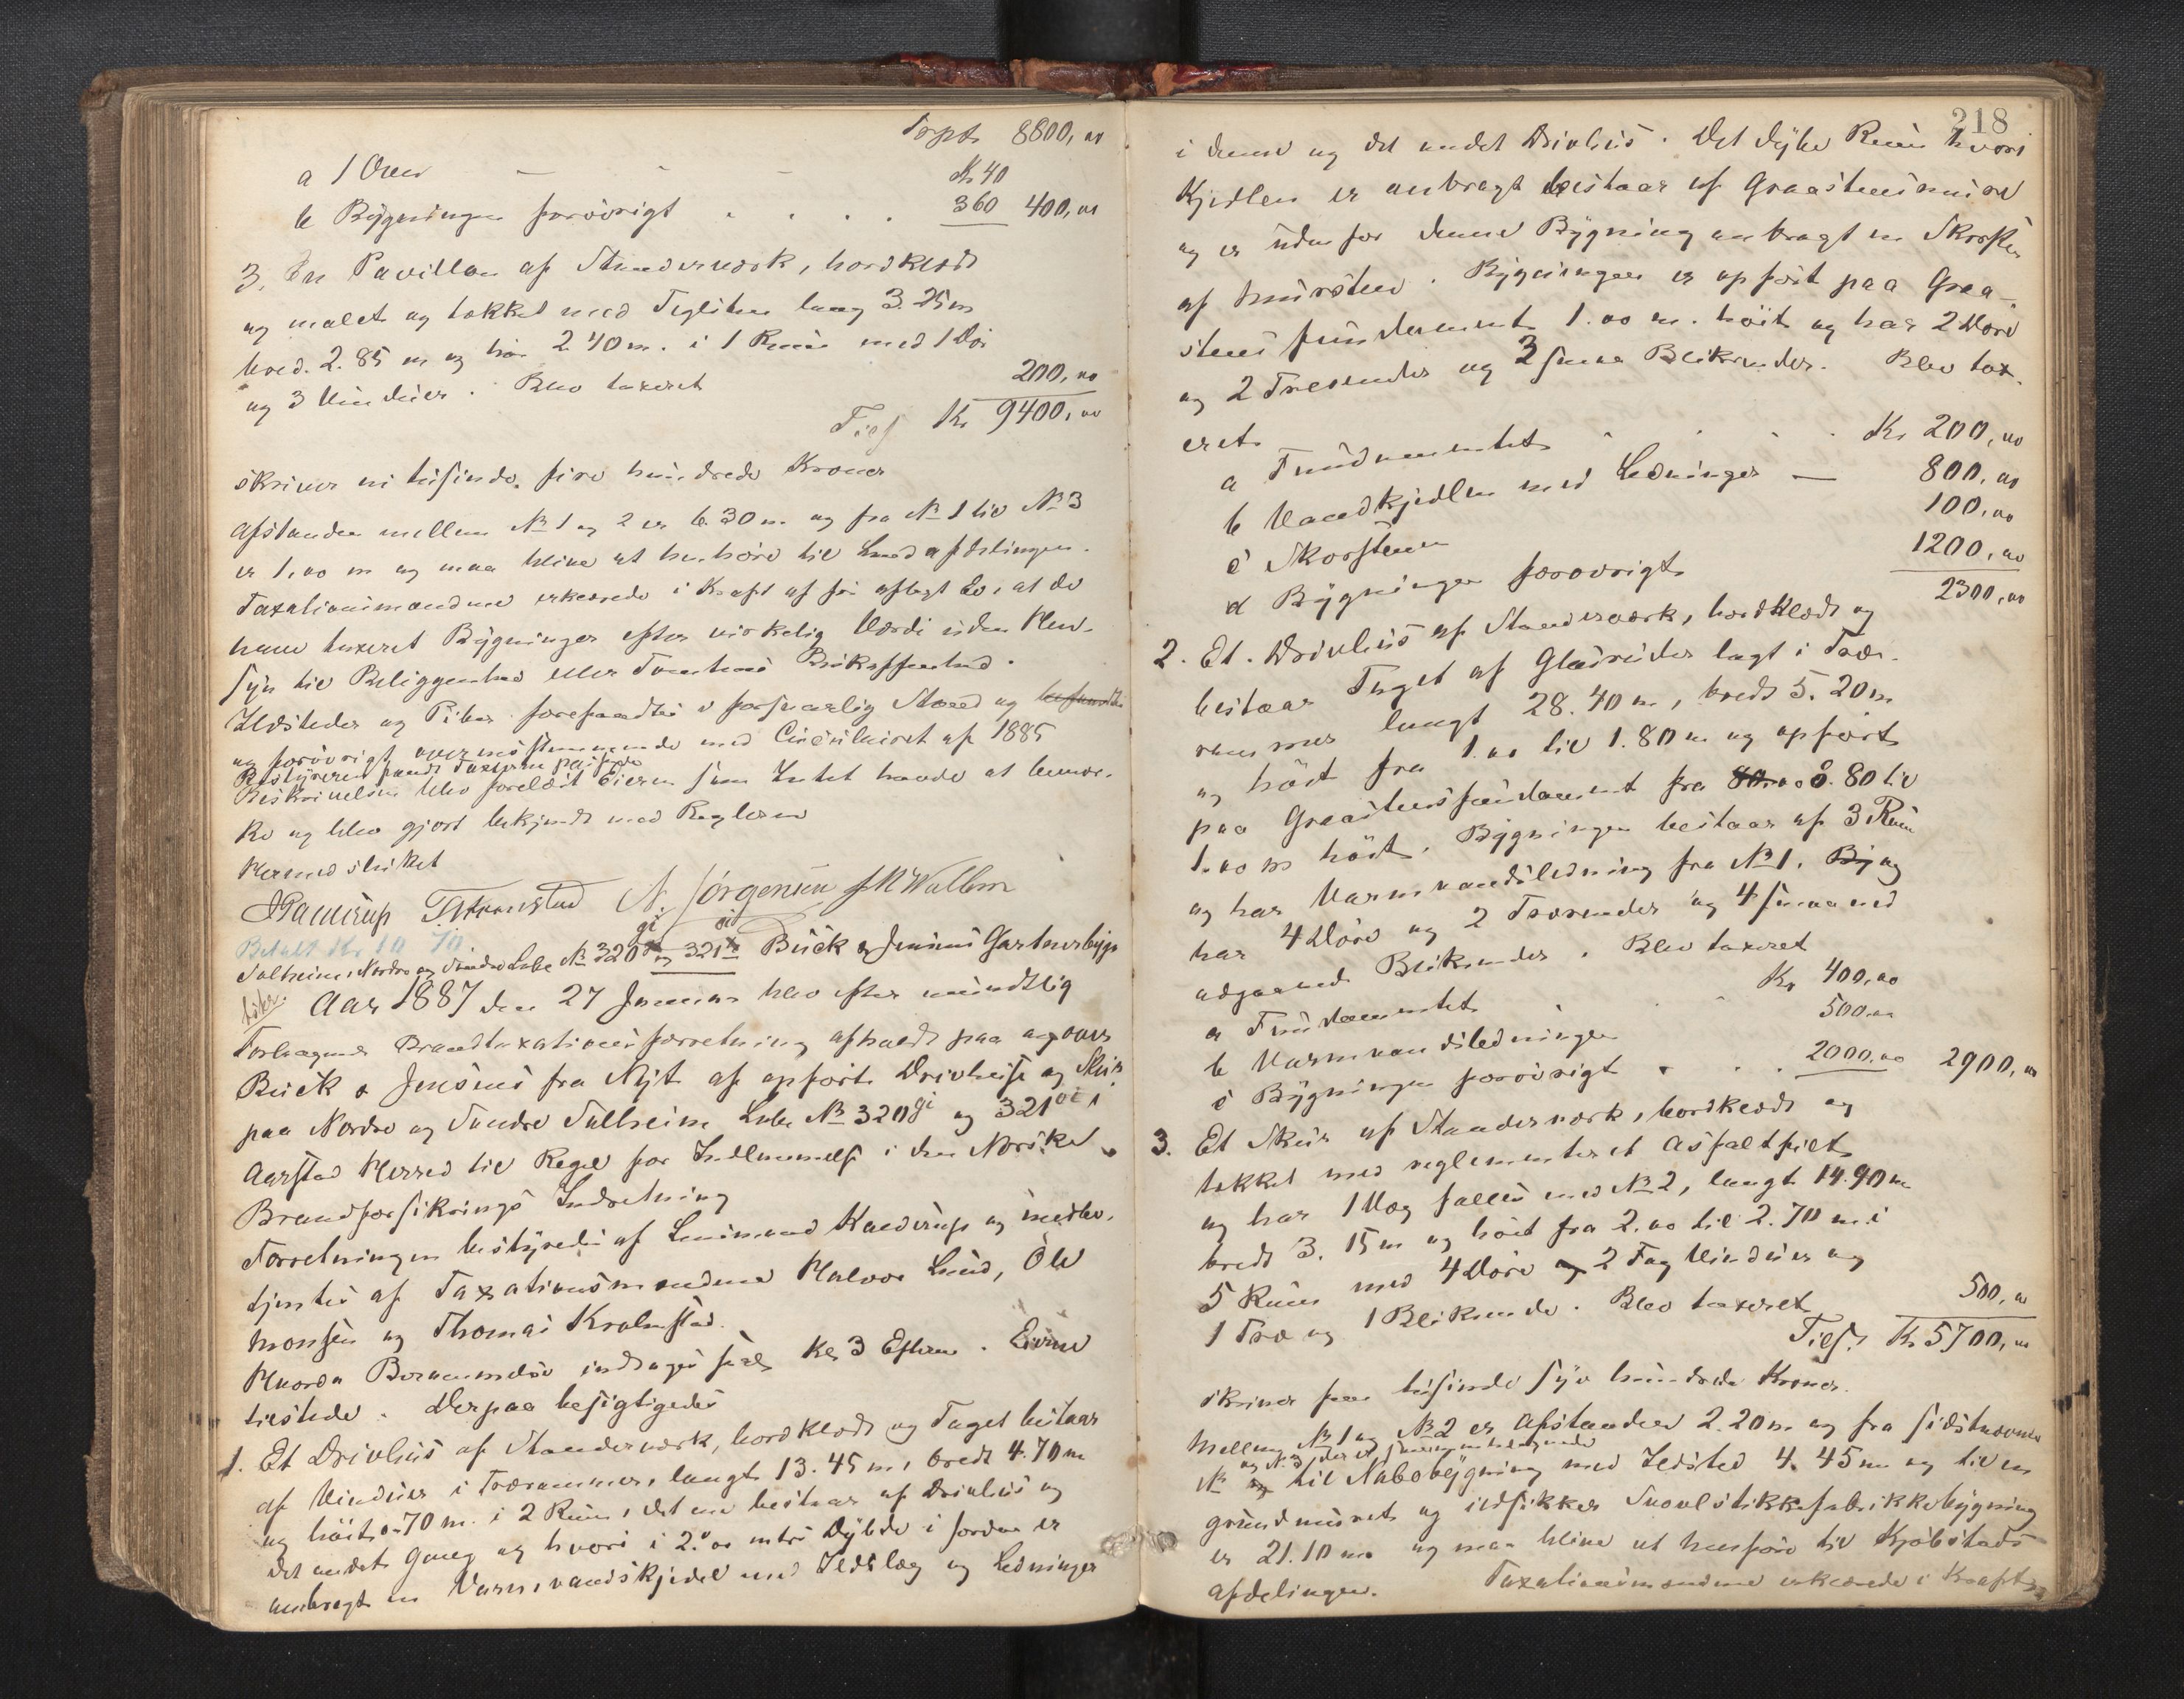 Trspt 8800,00
a 1 Oven - - - Kr 40
b Bygningen forøvrigt . . . . 360 400,00
3. En Pavillon af Stenderværk, bordklædt
og malet og takket med Tegelsten lang 3.25 m
bred. 2.85 m og høi 2.40 m. i 1 Rum med 1 Dør
og 3 Vinduer. Blev taxeret 200,00
Tils Kr 9400,00
skriver ni tusinde fire hundrede Kroner
Afstanden mellem No 1 og 2 er 6.30 m. og fra No 1 til No 3
er 1,00 m og maa blive at henhøre til Landafdelingen.
Taxationsmændene erklærede i Kraft af før aflagt Ed, at de
have taxeret Bygninger efter virkelig Værdi uden Hen-
syn til Beliggenhed eller Tomtens Beskaffenhed.
Ildsteder og Piber forefandtes i forsvarlig Stand og befandtes
og forøvrigt overensstemmende med Cirkulairet af 1885
Bestyreren fandt Taxten passende
Beskrivelsen blev forelæst Eieren som Intet havde at bemær-
ke og blev gjort bekjendt med Reglerne
Hermed sluttet
T. Kronstad N. Jørgensen
Betalt Kr 10 70
Solheim, Nordre og Søndre Labr No 320 gi og 321 oi Buck & Jensens Gartnerbygn
Aar 1887 den 27 Januar blev efter mundtlig
Forlagende Brandtaxationsforretning afholdt paa
Buck & Jensens fra Nyt af opførte Drivhuse og Skur
paa Nordre og Søndre Solheim Labr No 320 gi og 321 oi i
Aarstad Herred til Regel for Indlemmelse i den Norske
Brandforsikrings Indretning
Forretningen bestyredes af Lensmand Kaurup og medbe-
tjentes af Taxationsmændene Halvor Lund, Ole
Monsen og Thomas Kronstad.
Hvorda Berammelse indtoges sted Kl 3 Efterm. Eierne
tilstede. Derpaa besigtigedes
1. Et Drivhus af Stenderværk, bordklædt og Taget bestaar
af Vinduer i Trærammer, langt 13.45 m, bredt 4.70 m
og høit 0.70 m. i 2 Rum, det ene bestaar af Drivhus og
det andet Gang og hvori i 2.00 meters Dybde i Jorden er
anbragt en Varmvandskjedel med Ildslag og Ledninger
218
i denne og det andet Drivhus. Det dybe Rum hvori
Kjedlen er anbragt bestaar af Graastensmure
og er uden for denne Bygning anbragt en Skorsten
af Mursten. Bygningen er opført paa Graa-
stens fundament 1.00 m. høit og har 2 Døre
og 2 Trærender og 2 smaa Blikrender. Blev tax-
eret
a Fundamentet . . . Kr 200,00
b Vandkjedlen med Ledninger — 800,00
c Skorstenen 100,00
d Bygningen forøvrigt 1200,00
2300,00
2. Et. Drivhus af Stenderværk, bordklædt og
bestaar Taget af Glasruder lagt i Træ-
rammer langt 28.40 m, bredt 5.20 m
og høit fra 1.00 til 1.80 m og opført
paa Graastensfundament fra 0.80 til
1.00 m høit. Bygningen bestaar af 3 Rum
og har Varmvandsledning fra No 1. By og
har 4 Døre og 2 Trærender og 4 smaa ned
adgaaende Blikrender. Blev taxeret
a Fundamentet . . Kr 400,00
b Varmvandsledningen 500,00
c Bygningen forøvrigt . . . 2000.00 2900,00
3. Et Skur af Stenderværk, bordklædt og
takket med reglementeret Asfaltfilt
og har 1 Væg fælles med No 2, langt 14.90 m
bredt 3.15 m og høit fra 2.00 til 2.70 m. i
5 Rum med 4 Døre og 2 Fag Vinduer og
1 Træ og 1 Blikrende. Blev taxeret 500,00
Tils. Kr 5700,00
skriver fem tusinde syv hundrede Kroner.
Mellem No 1 og No 2 er Afstanden 2.20 m og fra sidstnævnte
og No 3, der er sammenbyggede
No til Nabobygning med Ildsted 4.45 m og til en
grundmuret og ildsikker Svovlstikkefabrikkebygning
er 21.10 m og maa blive at henføre til Kjøbstads
afdelingen. Taxationsmændene erklærede i Kraft